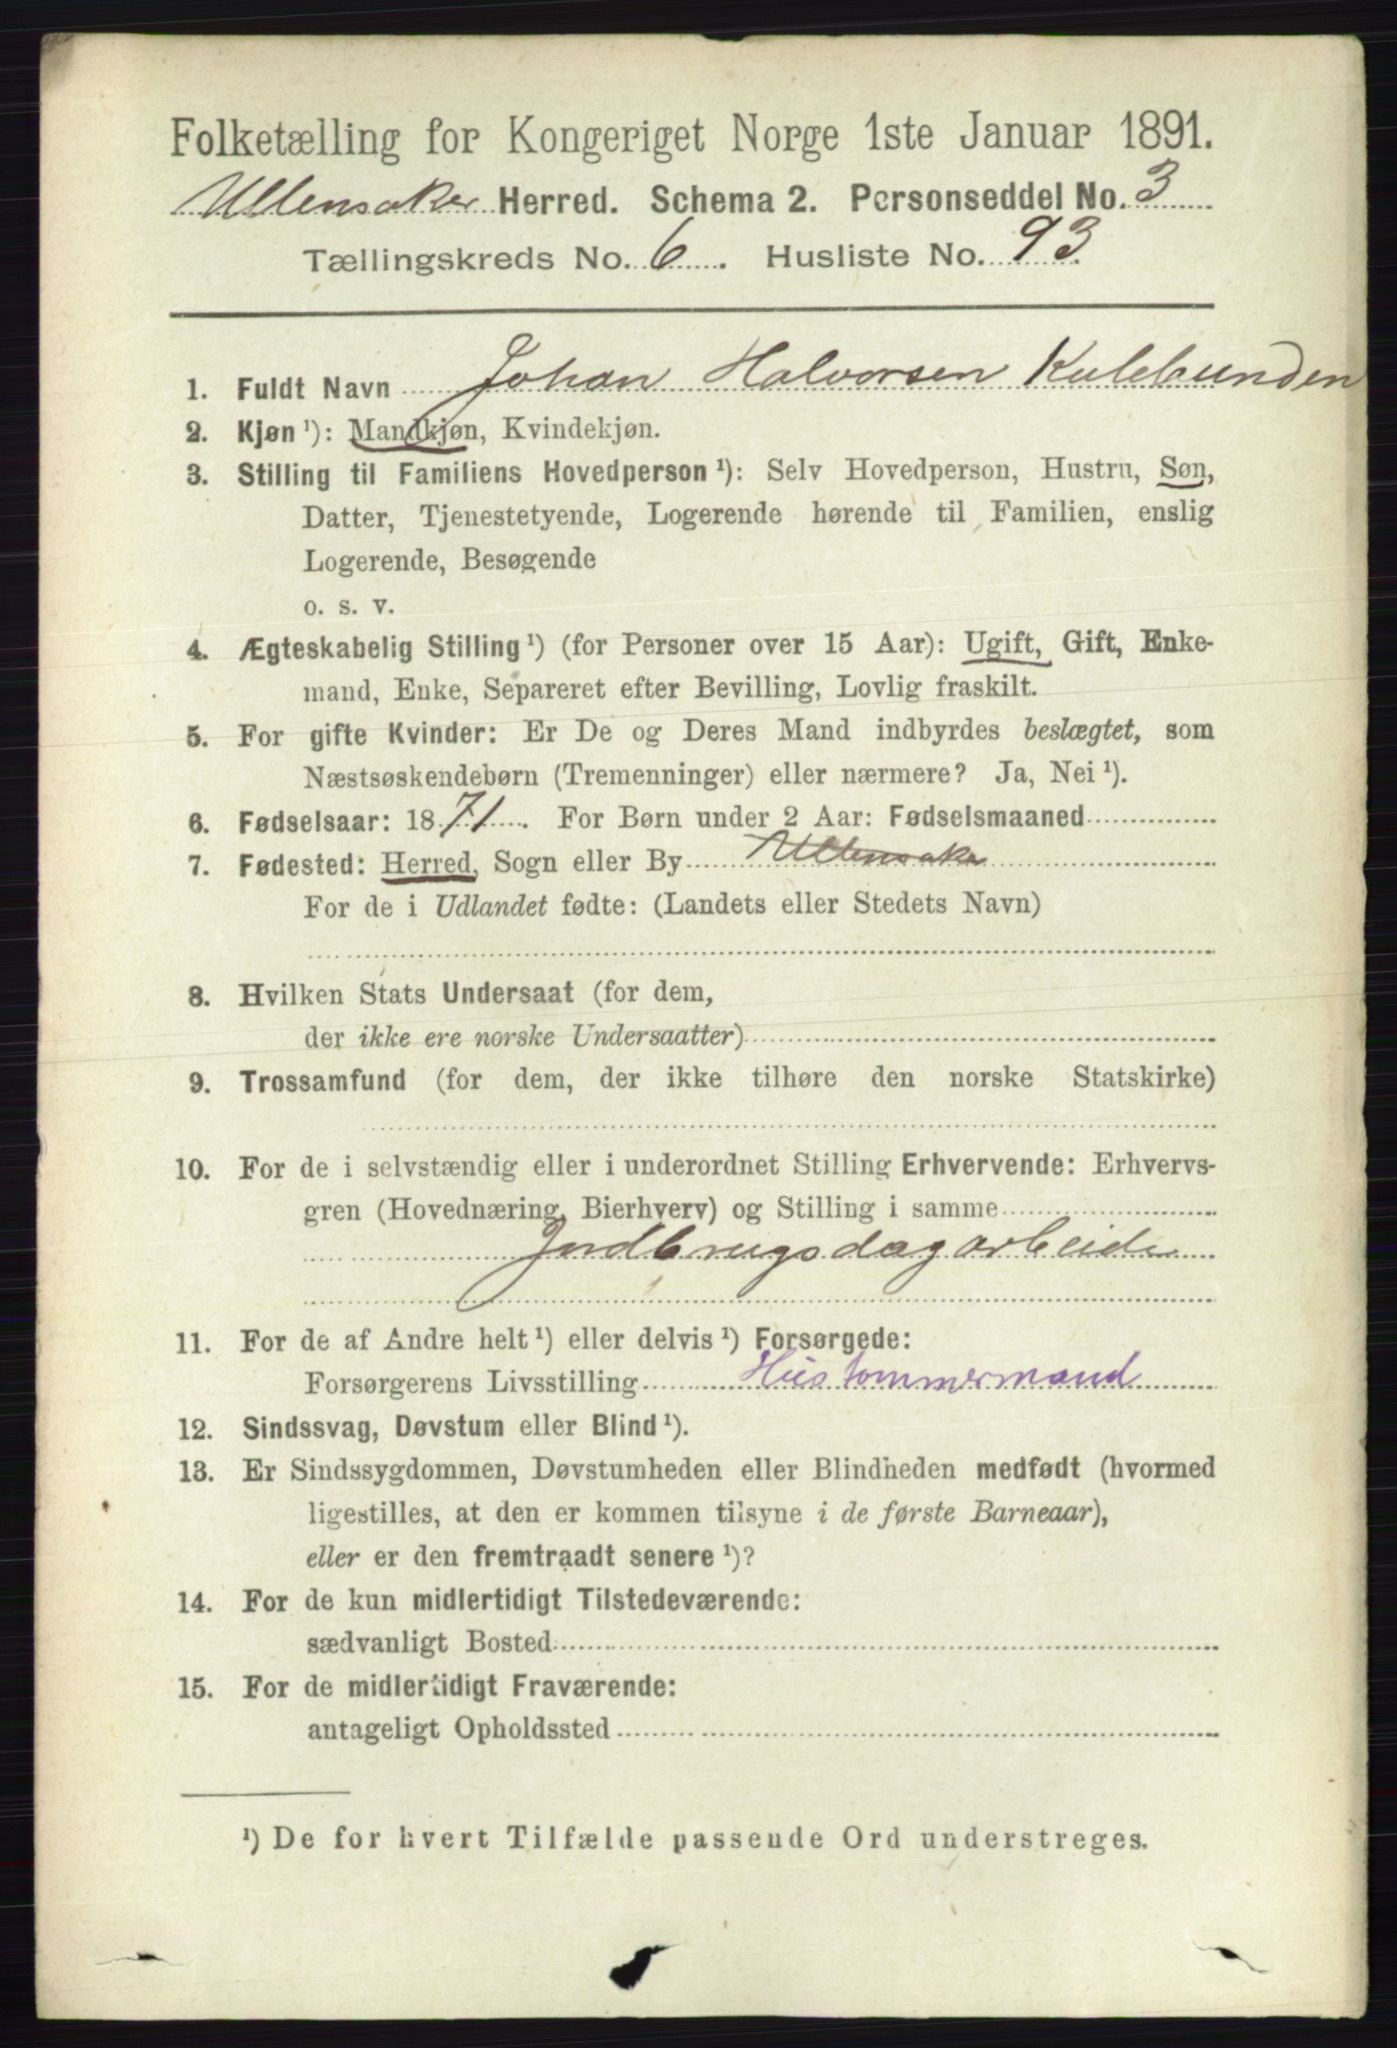 Folketælling for Kongeriget Norge 1ste Januar 1891.
Ullensaker Herred. Schema 2. Personseddel No. 3
Tællingskreds No. 6. Husliste No. 93.
1. Fuldt Navn Johan Halvorsen Kulebunden
2. Kjøn ¹): Mandkjøn, Kvindekjøn.
3. Stilling til Familiens Hovedperson ¹): Selv Hovedperson, Hustru, Søn,
Datter, Tjenestetyende, Logerende hørende til Familien, enslig
Logerende, Besøgende
o. s. v.
4. Ægteskabelig Stilling ¹) (for Personer over 15 Aar): Ugift, Gift, Enke-
mand, Enke, Separeret efter Bevilling, Lovlig fraskilt.
5. For gifte Kvinder: Er De og Deres Mand indbyrdes beslægtet, som
Næstsøskendebørn (Tremenninger) eller nærmere? Ja, Nei ¹).
6. Fødselsaar: 1871. For Børn under 2 Aar: Fødselsmaaned
7. Fødested: Herred, Sogn eller By Ullensaker
For de i Udlandet fødte: (Landets eller Stedets Navn)
8. Hvilken Stats Undersaat (for dem,
der ikke ere norske Undersaatter)
9. Trossamfund (for dem, der ikke tilhøre den norske Statskirke)
10. For de i selvstændig eller i underordnet Stilling Erhvervende: Erhvervs-
gren (Hovednæring, Bierhverv) og Stilling i samme
Jordbrugsdagarbeide
11. For de af Andre helt ¹) eller delvis ¹) Forsørgede:
Forsørgerens Livsstilling Hustømmermand
12. Sindssvag, Døvstum eller Blind ¹).
13. Er Sindssygdommen, Døvstumheden eller Blindheden medfødt (hvormed
ligestilles, at den er kommen tilsyne i de første Barneaar),
eller er den fremtraadt senere ¹)?
14. For de kun midlertidigt Tilstedeværende:
sædvanligt Bosted
15. For de midlertidigt Fraværende:
antageligt Opholdssted
¹) De for hvert Tilfælde passende Ord understreges.